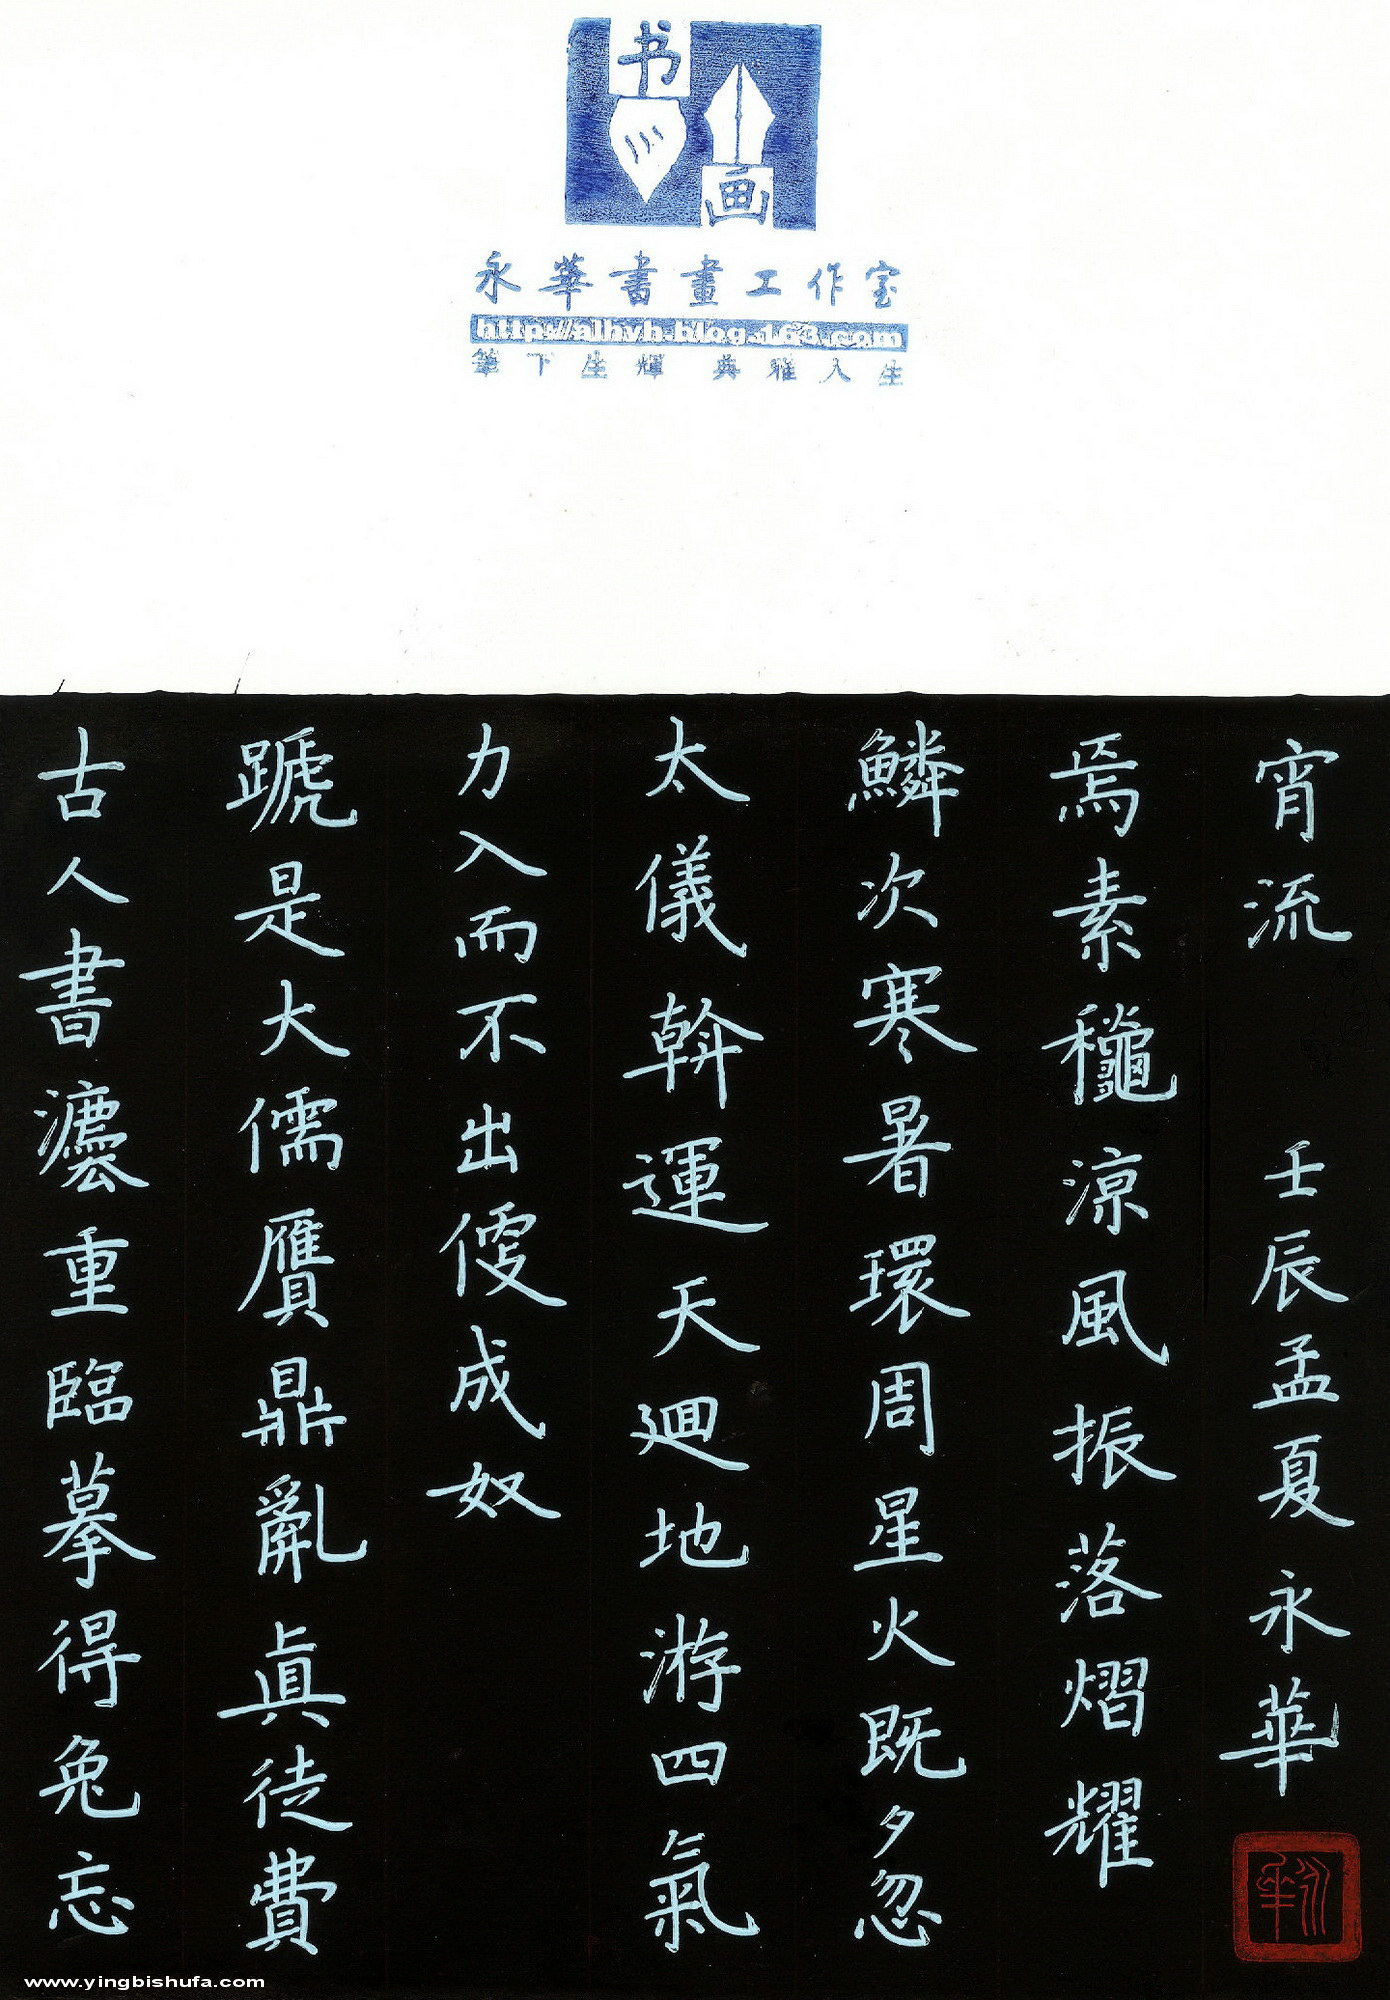 书
画
永華書畫工作室
http://alhyh.blog.163.com
筆下生輝 典雅人生
古人書灋重臨摹得兔忘
蹏是大儒贗鼎亂眞徒費
力入而不出成奴
太儀斡運天迴地游四氣
鱗次寒暑環周星火既夕忽
焉素龝涼風振落熠耀
宵流 壬辰孟夏永華
永華
www.yingbishufa.com